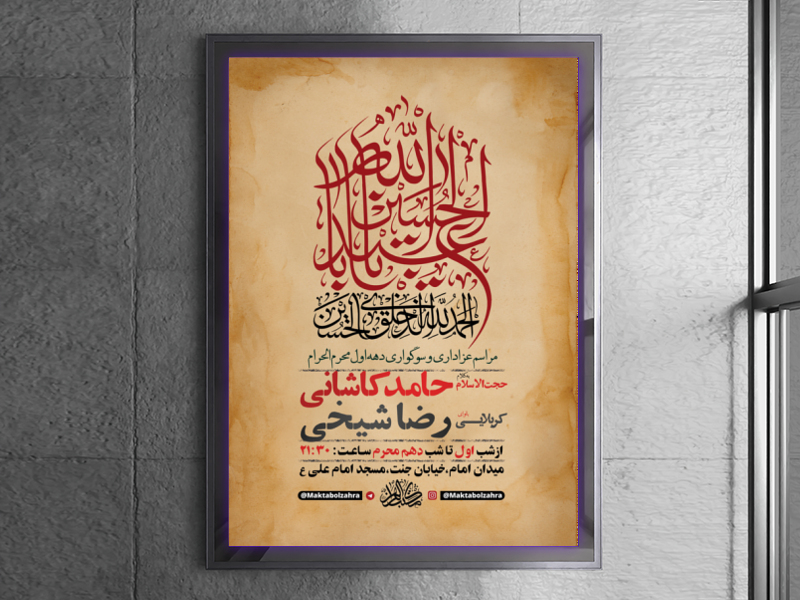 الحمد لله الذی خلق الحسین
مراسم عزاداری و سوگواری دهه اول محرم الحرام
حجت الاسلام حامد کاشانی
کربلایی رضا شیخی
از شب اول تا شب دهم محرم ساعت: ۲۱:۳۰
میدان امام، خیابان جنت، مسجد امام علی ع
@Maktabolzahra @Maktabolzahra